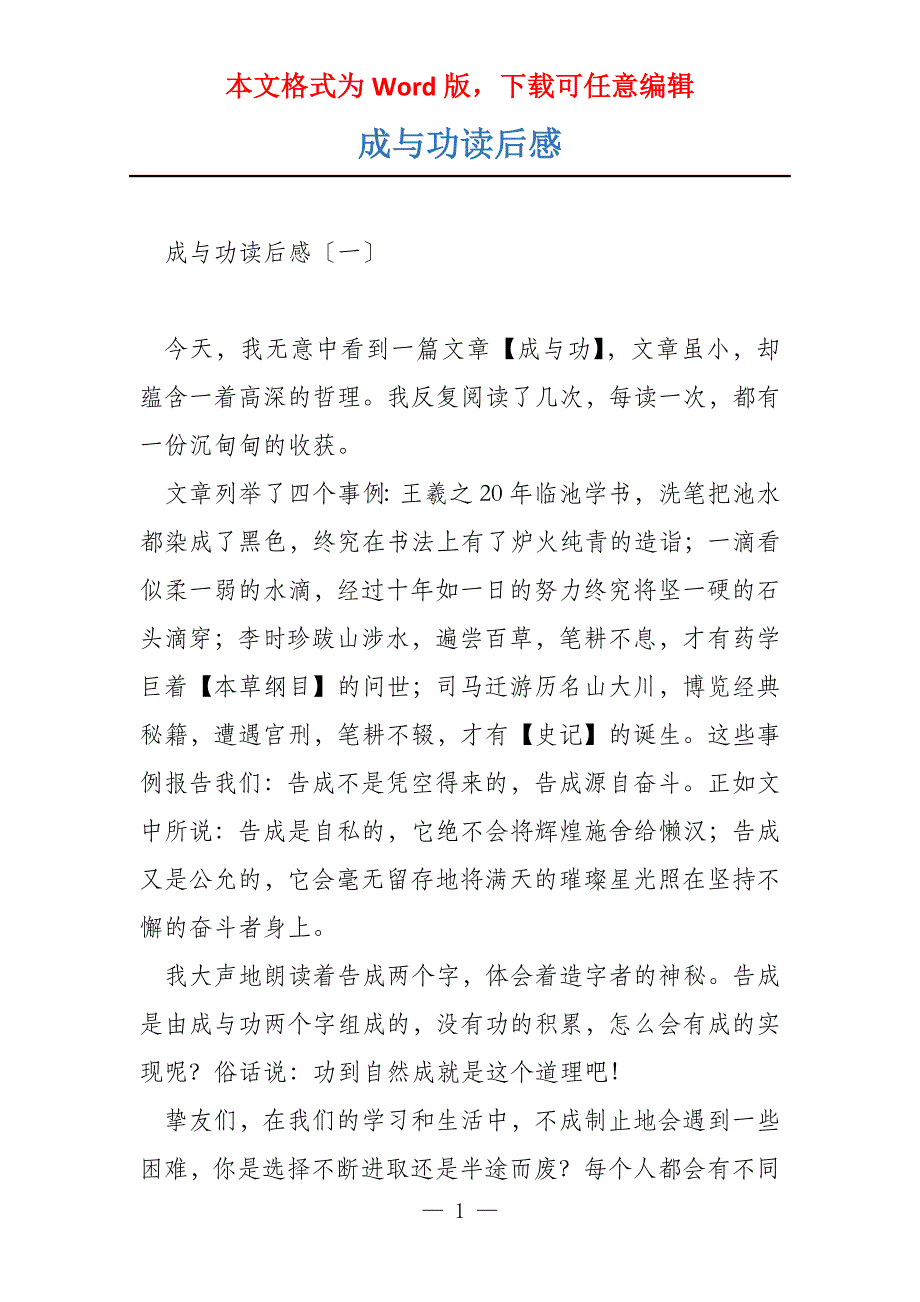 本文格式为 Word 版，下载可任意编辑
成与功读后感
成与功读后感〔一〕
今天，我无意中看到一篇文章【成与功】，文章虽小，却
蕴含一着高深的哲理。我反复阅读了几次，每读一次，都有
一份沉甸甸的收获。
文章列举了四个事例: 王羲之 20 年临池学书，洗笔把池水
都染成了黑色，终究在书法上有了炉火纯青的造诣；一滴看
似柔一弱的水滴，经过十年如一日的努力终究将坚一硬的石
头滴穿；李时珍跋山涉水，遍尝百草，笔耕不息，才有药学
巨着【本草纲目】的问世；司马迁游历名山大川，博览经典
秘籍，遭遇宫刑，笔耕不辍，才有【史记】的诞生。这些事
例报告我们：告成不是凭空得来的，告成源自奋斗。正如文
中所说：告成是自私的，它绝不会将辉煌施舍给懒汉；告成
又是公允的，它会毫无留存地将满天的璀璨星光照在坚持不
懈的奋斗者身上。
我大声地朗读着告成两个字，体会着造字者的神秘。告成
是由成与功两个字组成的，没有功的积累，怎么会有成的实
现呢？俗话说：功到自然成就是这个道理吧！
挚友们，在我们的学习和生活中，不成制止地会遇到一些
困难，你是选择不断进取还是半途而废？每个人都会有不同
— 1 —